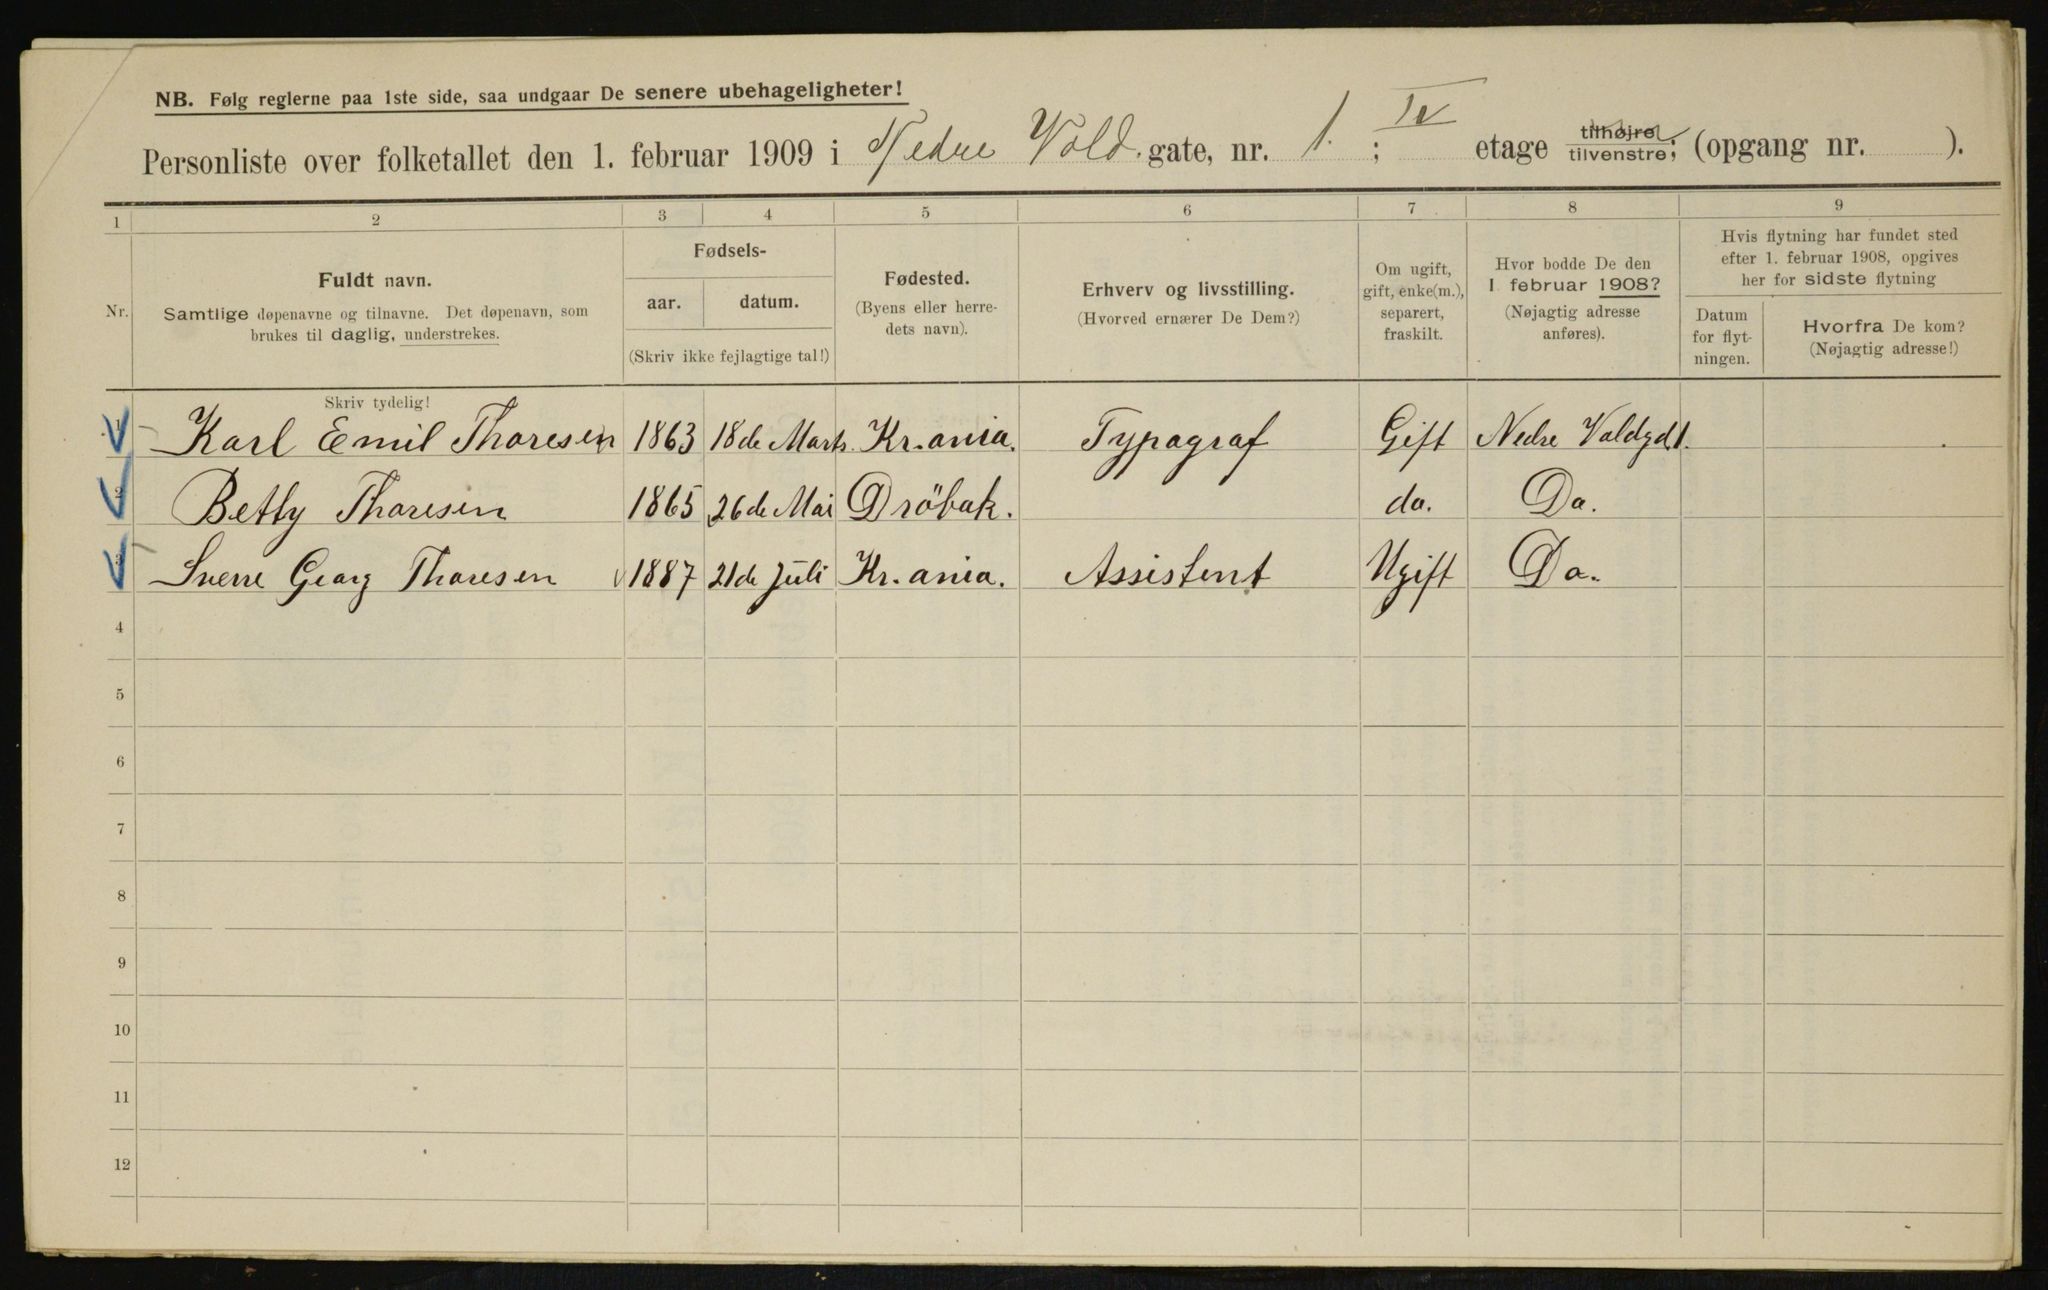 NB. Følg reglerne paa 1ste side, saa undgaar De senere ubehageligheter!
Personliste over folketallet den 1. februar 1909 i Nedre Vold. gate, nr. 1. ; IV etage tilhøjre, tilvenstre; (opgang nr. ).
1 2 3 4 5 6 7 8 9
Nr.
Fuldt navn.
Samtlige døpenavne og tilnavne. Det døpenavn, som
brukes til daglig, understrekes.
Fødsels-
aar. datum.
(Skriv ikke fejlagtige tal!)
Fødested.
(Byens eller herre-
dets navn).
Erhverv og livsstilling.
(Hvorved ernærer De Dem?)
Om ugift,
gift, enke(m.),
separert,
fraskilt.
Hvor bodde De den
1 februar 1908?
(Nøjagtig adresse
anføres).
Hvis flytning har fundet sted
efter 1. februar 1908, opgives
her for sidste flytning
Datum
for flyt-
ningen.
Hvorfra De kom?
(Nøjagtig adresse!)
Skriv tydelig!
1 Karl Emil Thoresen 1863 18de Marts. Kr.ania. Typograf Gift Nedre Voldgd 1.
2 Betty Thoresen 1865 26de Mai Dröbak. do. Do.
3 Sverre Georg Thoresen 1887 21de Juli Kr.ania. Assistent Ugift Do.
4
5
6
7
8
9
10
11
12